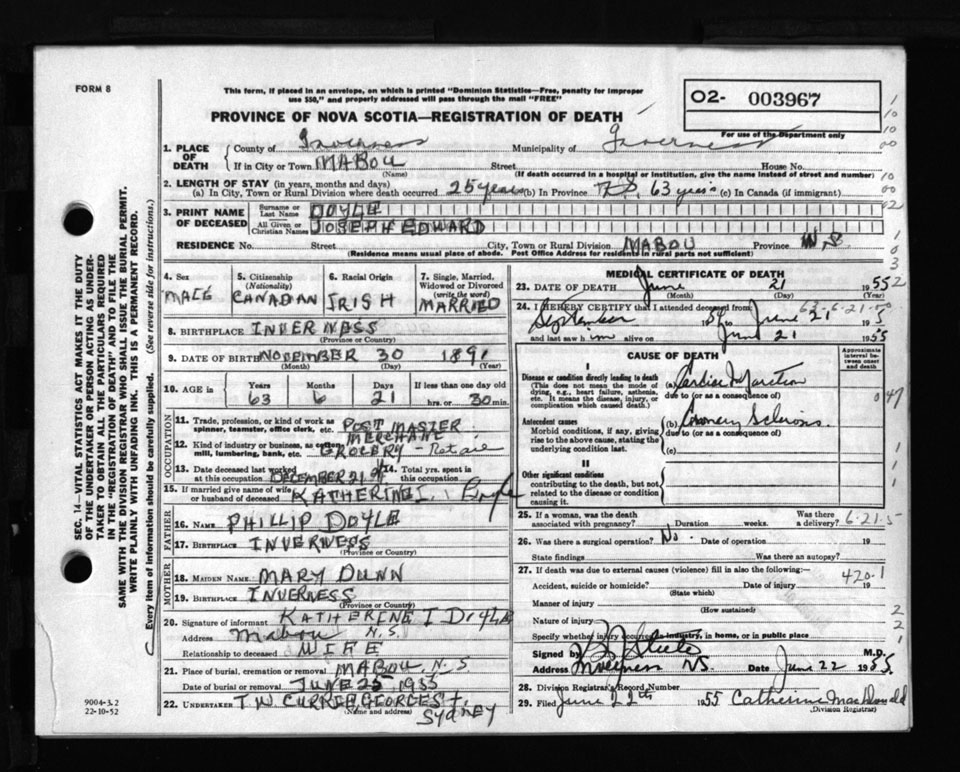 FORM 8
This form, if placed in an envelope, on which is printed "Dominion Statistics—Free, penalty for improper
use $50," and properly addressed will pass through the mail "FREE"
PROVINCE OF NOVA SCOTIA—REGISTRATION OF DEATH
O2- 003967
For use of the Department only
1. PLACE OF DEATH
County of Inverness Municipality of Inverness
If in City or Town MABOU Street House No.
(Name) (If death occurred in a hospital or institution, give the name instead of street and number)
2. LENGTH OF STAY (in years, months and days)
(a) In City, Town or Rural Division where death occurred 25 years (b) In Province 63 years (c) In Canada (if immigrant)
3. PRINT NAME OF DECEASED
Surname or Last Name DOYLE
All Given or Christian Names JOSEPH EDWARD
RESIDENCE No. Street City, Town or Rural Division MABOU Province N.S
(Residence means usual place of abode. Post Office Address for residents in rural parts not sufficient)
4. Sex MALE
5. Citizenship (Nationality) CANADIAN
6. Racial Origin IRISH
7. Single, Married, Widowed or Divorced (write the word) MARRIED
8. BIRTHPLACE INVERNESS
(Province or Country)
9. DATE OF BIRTH NOVEMBER 30 1891
(Month) (Day) (Year)
10. AGE in Years Months Days If less than one day old
63 6 21 hrs. or 30 min.
OCCUPATION
11. Trade, profession, or kind of work as spinner, teamster, office clerk, etc. POST MASTER
MERCHANT
12. Kind of industry or business, as cotton mill, lumbering, bank, etc. GROCERY - Retail
13. Date deceased last worked at this occupation DECEMBER 21
14. Total yrs. spent in this occupation
15. If married give name of wife or husband of deceased KATHERINE I. Doyle
FATHER
16. NAME PHILLIP DOYLE
17. BIRTHPLACE INVERNESS
(Province or Country)
MOTHER
18. MAIDEN NAME MARY DUNN
19. BIRTHPLACE INVERNESS
(Province or Country)
20. Signature of informant KATHERINE I DOYLE
Address Mabou N.S.
Relationship to deceased WIFE
21. Place of burial, cremation or removal MABOU, N.S
Date of burial or removal JUNE 25, 1955
22. UNDERTAKER T.W. CURREN GEORGE ST.
(Name and address) SYDNEY
MEDICAL CERTIFICATE OF DEATH
23. DATE OF DEATH June 21 1955
(Month) (Day) (Year)
24. I HEREBY CERTIFY that I attended deceased from
September 54 to June 21 1955
and last saw him alive on June 21 1955
CAUSE OF DEATH
Approximate interval between onset and death
I
Disease or condition directly leading to death
(This does not mean the mode of dying, e.g., heart failure, asthenia, etc. It means the disease, injury, or complication which caused death.)
(a) Cardiac Infarction
due to (or as a consequence of)
Antecedent causes
Morbid conditions, if any, giving rise to the above cause, stating the underlying condition last.
(b) Coronary Sclerosis
due to (or as a consequence of)
(c)
II
Other significant conditions
contributing to the death, but not related to the disease or condition causing it.
25. If a woman, was the death associated with pregnancy? Duration weeks. Was there a delivery? 6-21-5
26. Was there a surgical operation? No. Date of operation 19
State findings Was there an autopsy?
27. If death was due to external causes (violence) fill in also the following:—
420.1
Accident, suicide or homicide? Date of injury 19
(State which)
Manner of injury
(How sustained)
Nature of injury
Specify whether injury occurred in industry, in home, or in public place
Signed by M.D.
Address Inverness NS Date June 22 1955
28. Division Registrar's Record Number
29. Filed June 22th 1955 Catherine MacDonald
(Division Registrar)
9004-3.2
22-10-52
SEC. 14—VITAL STATISTICS ACT MAKES IT THE DUTY
OF THE UNDERTAKER OR PERSON ACTING AS UNDER-
TAKER TO OBTAIN ALL THE PARTICULARS REQUIRED
IN THE "REGISTRATION OF DEATH" AND TO FILE THE
SAME WITH THE DIVISION REGISTRAR WHO SHALL ISSUE THE BURIAL PERMIT.
WRITE PLAINLY WITH UNFADING INK. THIS IS A PERMANENT RECORD.
Every item of information should be carefully supplied. (See reverse side for instructions.)